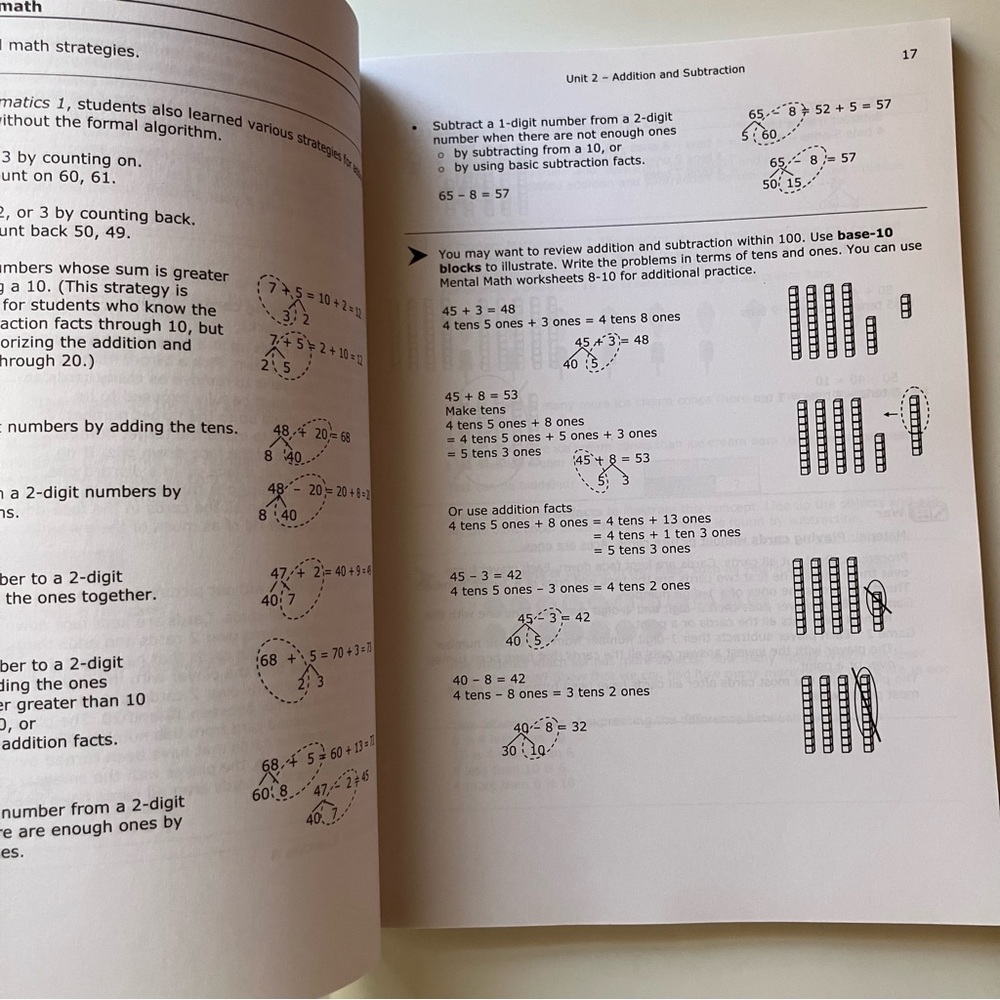 math
math strategies.
matics 1, students also learned various strategies for
without the formal algorithm.
3 by counting on.
unt on 60, 61.
2, or 3 by counting back.
unt back 50, 49.
umbers whose sum is greater
g a 10. (This strategy is
for students who know the
action facts through 10, but
orizing the addition and
hrough 20.)
7 + 5 = 10 + 2 = 12
3 2
7 + 5 = 2 + 10 = 12
2 5
t numbers by adding the tens.
48 + 20 = 68
8 40
n a 2-digit numbers by
ns.
48 - 20 = 20 + 8 = 2
8 40
ber to a 2-digit
the ones together.
47 + 2 = 40 + 9 = 4
40 7
ber to a 2-digit
ding the ones
er greater than 10
0, or
addition facts.
68 + 5 = 70 + 3 = 7
2 3
68 + 5 = 60 + 13 = 7
60 8
number from a 2-digit
re are enough ones by
es.
47 - 2 = 45
40 7
17
Unit 2 – Addition and Subtraction
• Subtract a 1-digit number from a 2-digit
number when there are not enough ones
o by subtracting from a 10, or
o by using basic subtraction facts.
65 – 8 = 57
65 - 8 = 52 + 5 = 57
5 60
65 - 8 = 57
50 15
➤ You may want to review addition and subtraction within 100. Use base-10
blocks to illustrate. Write the problems in terms of tens and ones. You can use
Mental Math worksheets 8-10 for additional practice.
45 + 3 = 48
4 tens 5 ones + 3 ones = 4 tens 8 ones
45 + 3 = 48
40 5
45 + 8 = 53
Make tens
4 tens 5 ones + 8 ones
= 4 tens 5 ones + 5 ones + 3 ones
= 5 tens 3 ones
45 + 8 = 53
5 3
Or use addition facts
4 tens 5 ones + 8 ones = 4 tens + 13 ones
= 4 tens + 1 ten 3 ones
= 5 tens 3 ones
45 – 3 = 42
4 tens 5 ones – 3 ones = 4 tens 2 ones
45 - 3 = 42
40 5
40 – 8 = 42
4 tens – 8 ones = 3 tens 2 ones
40 - 8 = 32
30 10